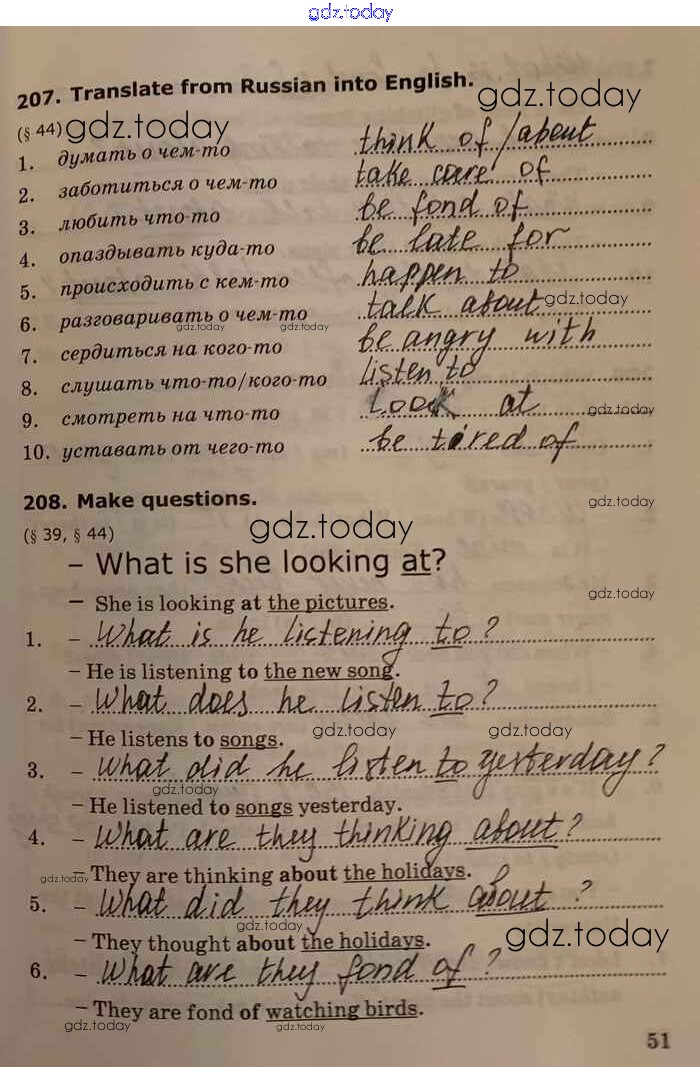 gdz.today
207. Translate from Russian into English.
gdz.today
(§ 44) gdz.today
1. думать о чем-то think of / about
2. заботиться о чем-то take care of
3. любить что-то be fond of
4. опаздывать куда-то be late for
5. происходить с кем-то happen to
6. разговаривать о чем-то talk about gdz.today
gdz.today gdz.today
7. сердиться на кого-то be angry with
8. слушать что-то/кого-то listen to
9. смотреть на что-то Look at gdz.today
10. уставать от чего-то be tired of
208. Make questions.
gdz.today
(§ 39, § 44) gdz.today
– What is she looking at?
– She is looking at the pictures. gdz.today
1. – What is he listening to?
– He is listening to the new song.
2. – What does he listen to?
– He listens to songs. gdz.today gdz.today
3. – What did he listen to yesterday?
gdz.today
– He listened to songs yesterday.
4. – What are they thinking about?
gdz.today – They are thinking about the holidays.
5. – What did they think about?
gdz.today gdz.today
– They thought about the holidays.
6. – What are they fond of?
– They are fond of watching birds.
gdz.today gdz.today
51